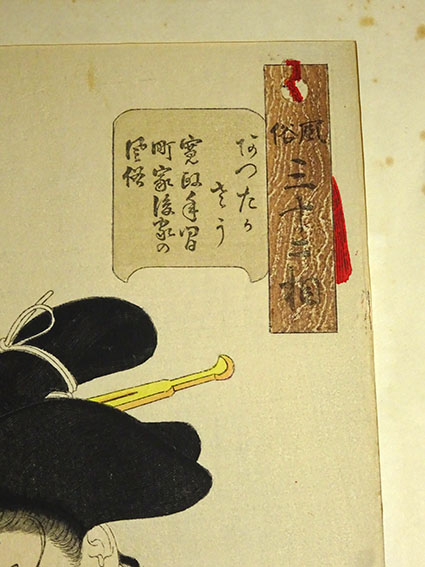 風俗
三十二相
あつたか
さう
寛政年間
町家後家の
風俗